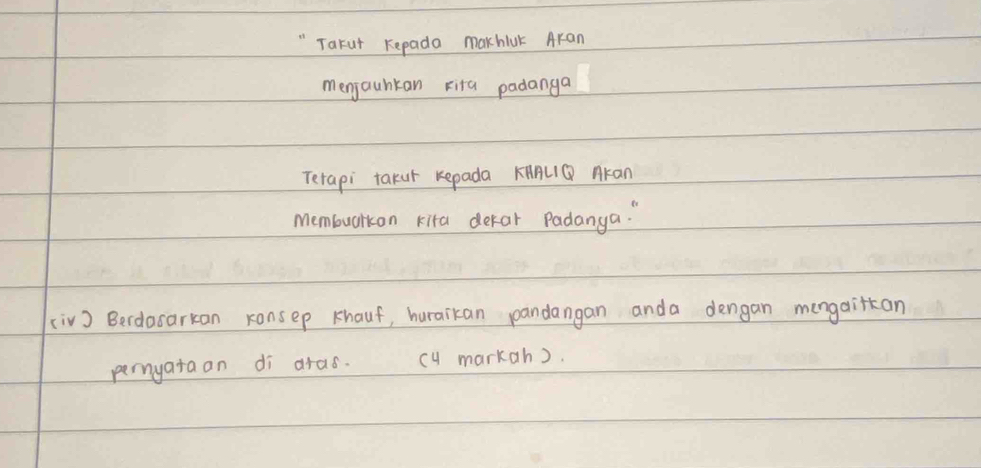 "Takut Kepada Makhluk Akan
menjauhkan kita padanya
Tetapi takut kepada KHALIQ Akan
Membuatkan kita dekat Padanya."
(iv) Berdasarkan konsep Khauf, huraikan pandangan anda dengan mengaitkan
pernyataan di atas. (4 markah).